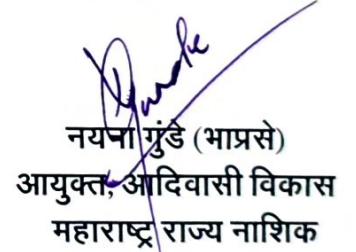 नयना गुंडे (भाप्रसे)
आयुक्त, आदिवासी विकास
महाराष्ट्र राज्य नाशिक